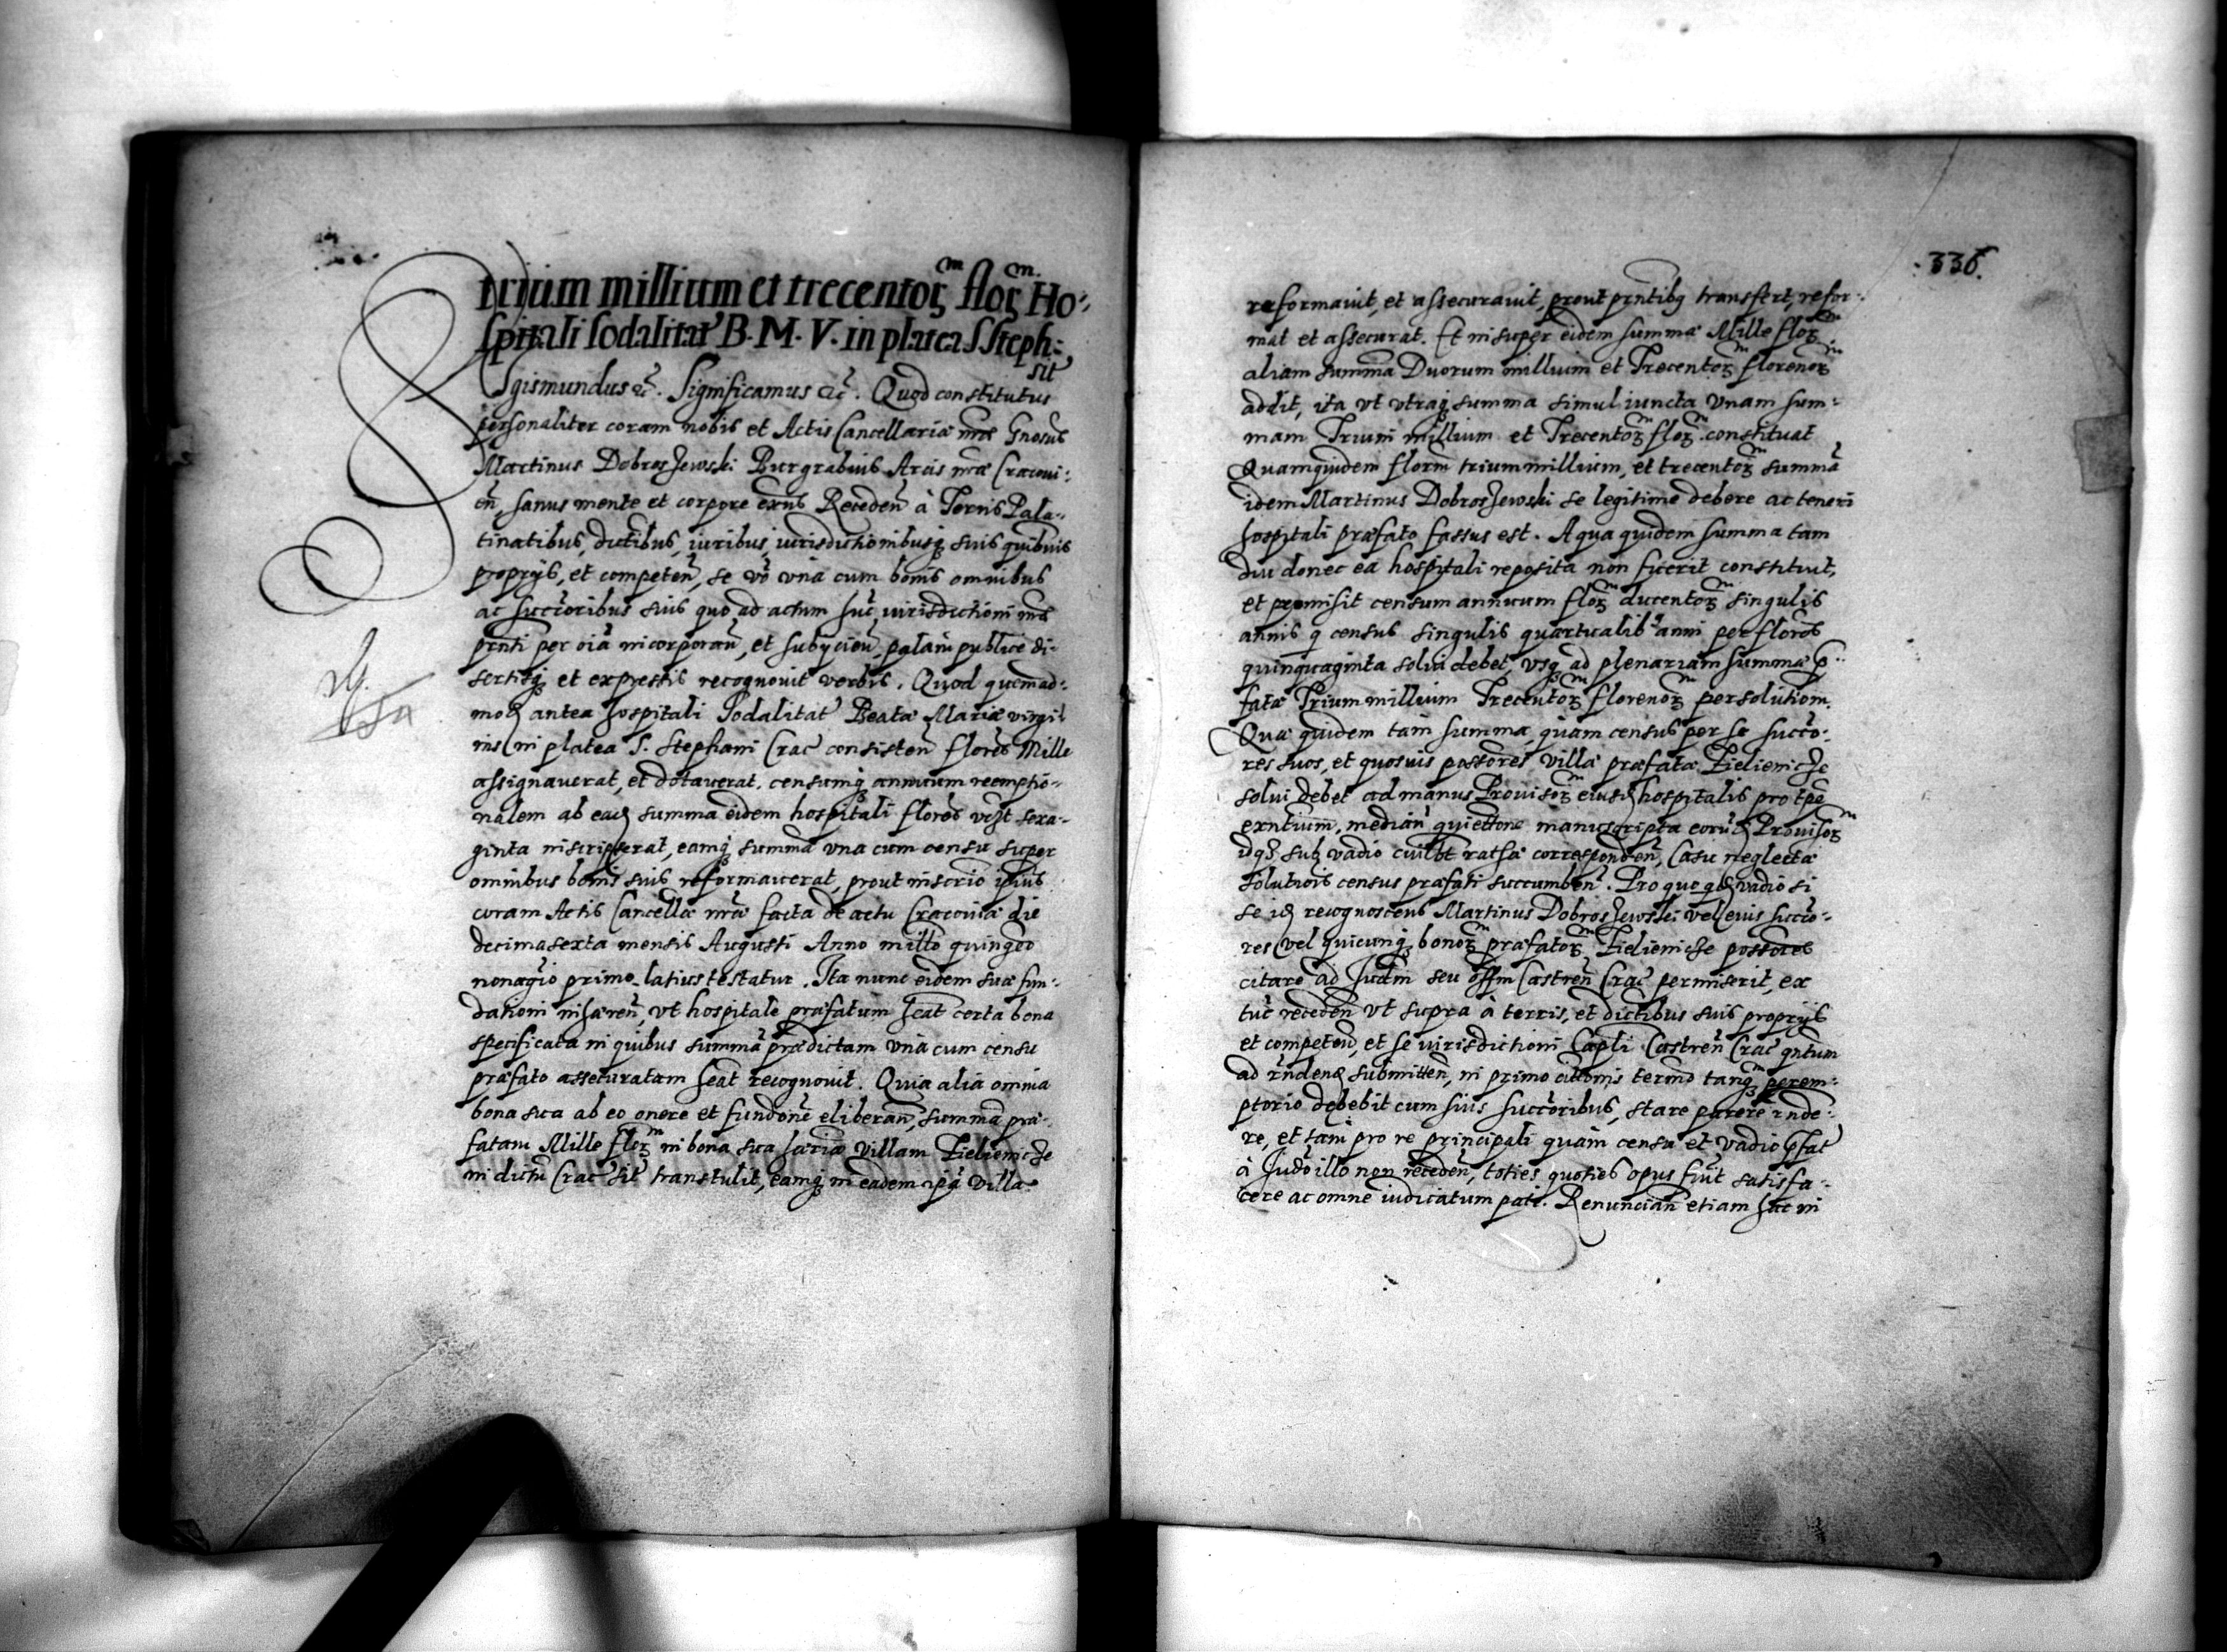 trium millium et trecentoꝝ^m floꝝ^m. Ho-
spitali sodalitat͛ B. M. V. in platea S Steph:
sit͛
Sigismundus &c̃. Significamus &c̃. Quod constitutus
personaliter coram nobis et Actis Cancellariæ nr̃æ Gnosus
Martinus Dobroszewski Burgrabius Arcis nr̃æ Cracoui:
eñ, sanus mente et corpore exñs Recedeñ à Terris Pala-
tinatibus, dictibus, iuribus, iurisdictionibusq̃ suis quibuis
proprijs, et competeñ, se vo᷃ vna cum bonis omnibus
ac succ̃oribus suis quo, ad actum huc͛, iurisdictioni nr̃æ
prñti per oĩa incorporañ, et subijcieñ, palam publice di-
sertisq̃ et expressis recognouit verbis. Quod quemad-
moꝺ antea hospitali Sodalitat͛ Beatæ Mariæ virgi-
nis in platea S. Stephani Crac͛ consisteñ flores Mille
assignauerat, et dotauerat. censumq̃ annuum reemptio-
nalem ab eaꝺ summa eidem hospitali flores vczt sexa-
ginta inscripserat, eamq̃ summã vna cum censu super
omnibus bonis suis reformauerat, prout inscrio ipius
coram Actis Cancellæ nr̃æ facta de actu Cracouiæ die
decimasexta mensis Augusti Anno millo quingẽo
nonagio primo latius testatur. Ita nunc eidem suæ fun-
dationi inhæreñ, vt hospitale præfatum heat certa bona
specificata in quibus summã prædictam vnà cum censu
præfato assecuratam heat recognouit. Quia alia omnia
bona sua ab eo onere et fundõne eliberañ, summã præ-
fatam Mille floꝝ^m in bona sua hæria villam Zielienicze
in dictu Crac͛ sit͛ transtulit, eamq̃ in eadem ipa villa
336.
reformauit, et assecurauit, prout prñtibꝫ transfert, refor-
mat et assecurat. Et insuper eidem summæ Mille floꝝ^m
aliam summã Duorum millium et Trecentoꝝ^m florenoꝝ^m
addit, ita vt vtraq̃ summa simul iuncta vnam sum-
mam Trium millium et Trecentoꝝ^m floꝝ^m constituat
Quamquidem florm trium millium, et trecentoꝝ^m summã
idem Martinus Dobroszewski se legitime debere ac teneri
hospitali præfato fassus est. A qua quidem summa tam
diu donec ea hospitali reposita non fuerit constituit,
et promisit censum annuum floꝝ^m ducentoꝝ^m singulis
annis q̃ census singulis quartualibꝫ anni per flores
quinquaginta solui debet vsq̃ ad plenariam summæ p̃-
fatæ Trium millium Trecentoꝝ^m florenoꝝ^m persolutiom.
Quæ quidem tam summa, quam census per se succo-
res suos, et quosuis possores villæ præfatæ Zielienicze
solui debet ad manus Prouisoꝝ^m eiusꝺ hospitalis pro tpẽ
exñtium, mediañ quiettõne manuscripta eorũꝺ Prouisoꝝ^m
idqꝫ sub vadio cuilbt ratæ correspondeñ, Casu neglectæ
solutiõis census præfati succumbeñ. Pro quo qdꝺ vadio si
se iꝺ recognoscens Martinus Dobroszewski vel eius succo-
res vel quicunq̃ bonoꝝ^m præfatoꝝ^m Zielienicze possores
citare ad Judm̃ seu off̃m Castreñ Crac͛ permiserit, ex
tuc͛ recedeñ vt supra à terris, et dictibus suis proprijs
et competeñ, et se iurisdictioni Capli Castreñ Crac͛ qñtum
ad rñdenꝺ submitteñ, in primo citt̃onis termõ tanq̃ perem-
ptorio debebit cum suis succ̃oribus, stare parere rñde-
re, et tam pro re principali quàm censu et vadio p̃fat͛
à Judõ illo non recedeñ, toties quoties opus fiut͛ satisfa-
cere ac omne iudicatum pati. Renunciañ etiam huc in